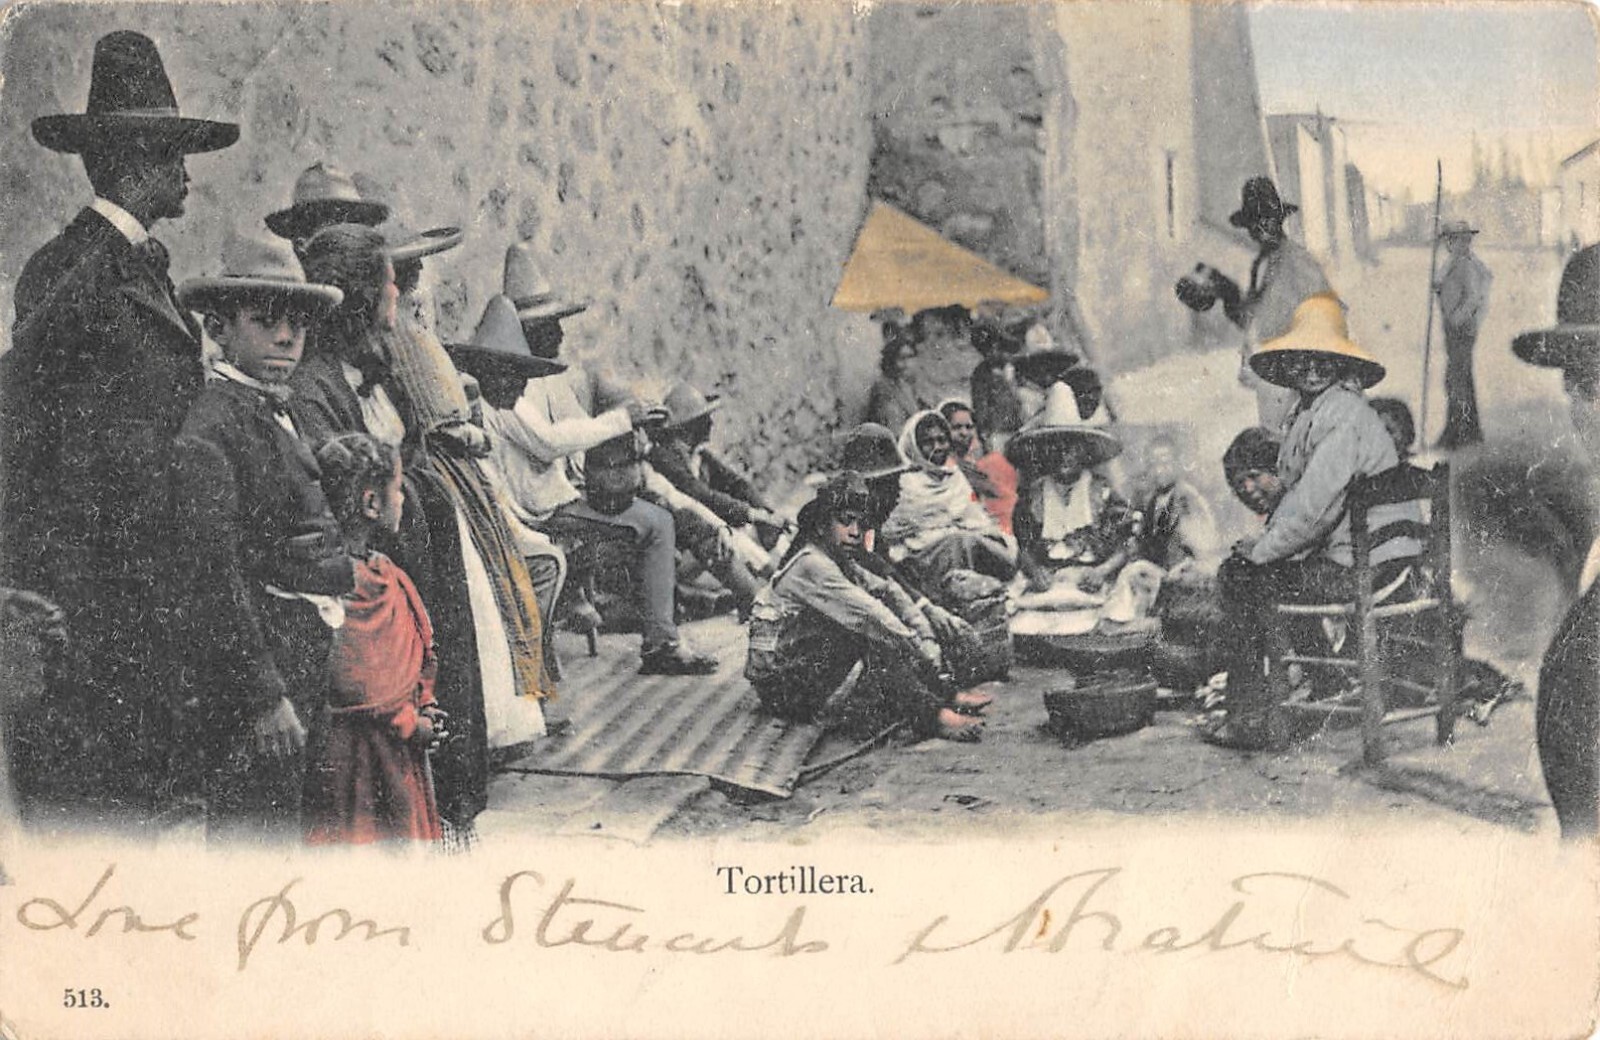 Tortillera.
Love from Stewart &
513.